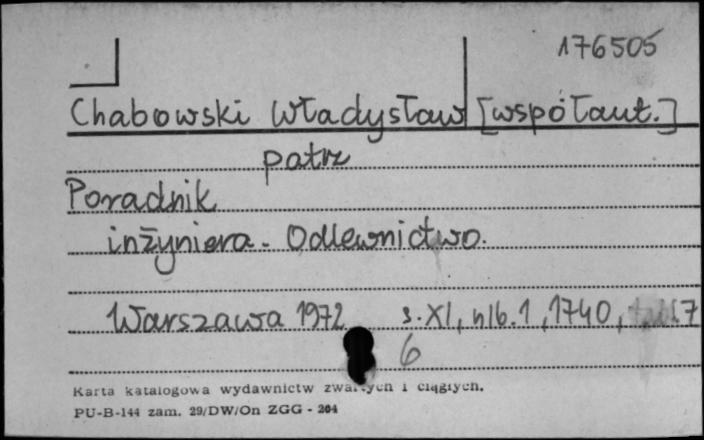 176505
Chabowski Władysław [współaut.]
patrz
Poradnik
inżyniera. Odlewnictwo.
Warszawa 1972 s. XI, nlb. 1, 1740, 7
6
Karta katalogowa wydawnictw zwartych i ciągłych.
PU-B-144 zam. 29/DW/On ZGG - 264